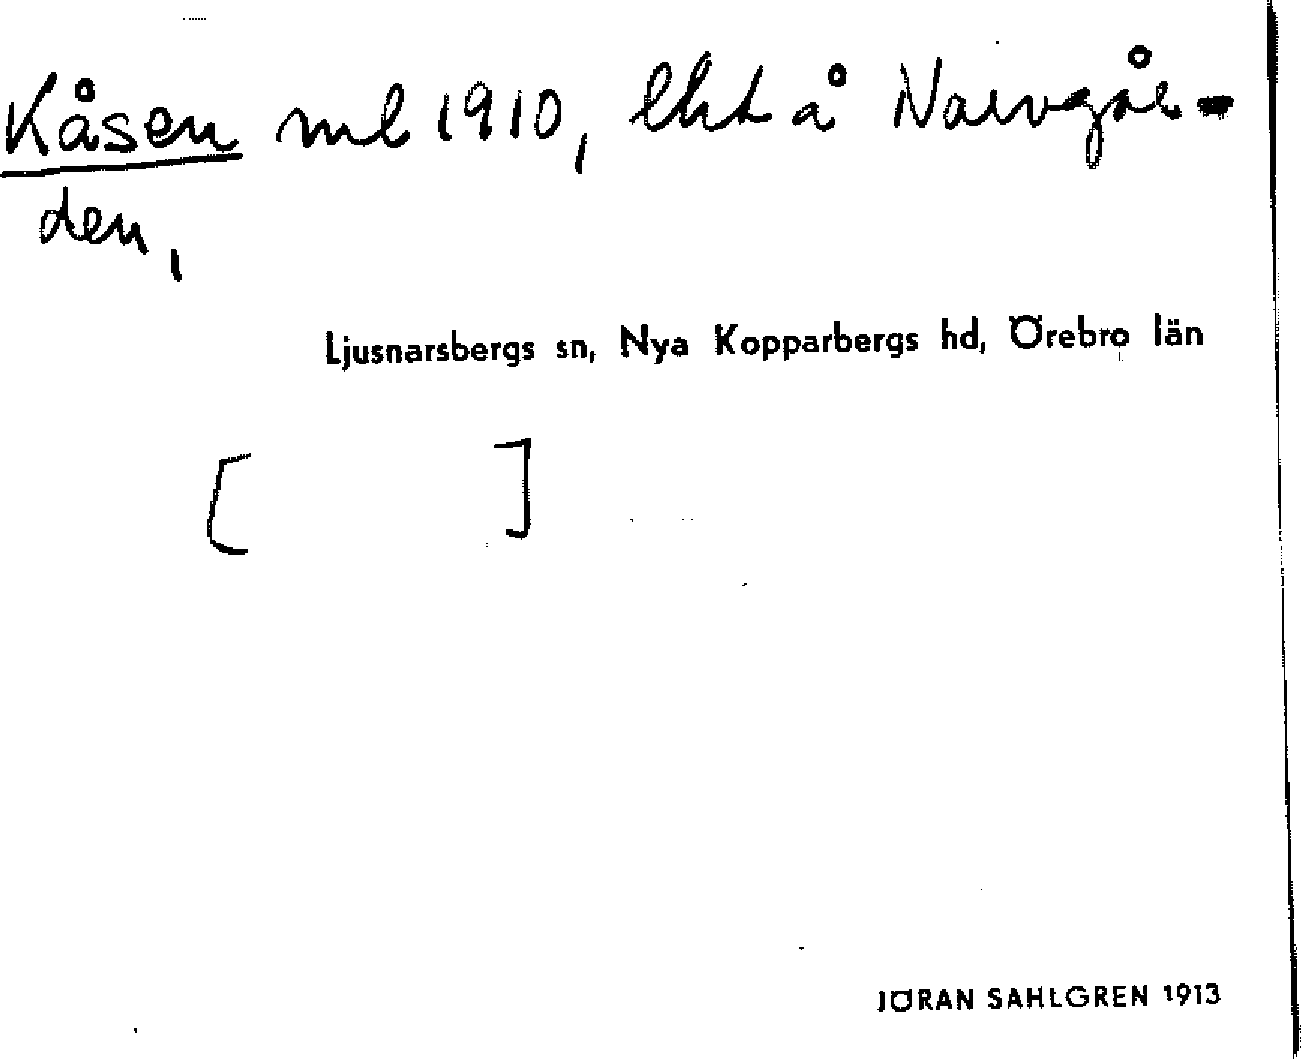 Kåsen ml 1910, lht å Narvgår-
den,
Ljusnarsbergs sn, Nya Kopparbergs hd, Örebro län
[ ]
JÖRAN SAHLGREN 1913